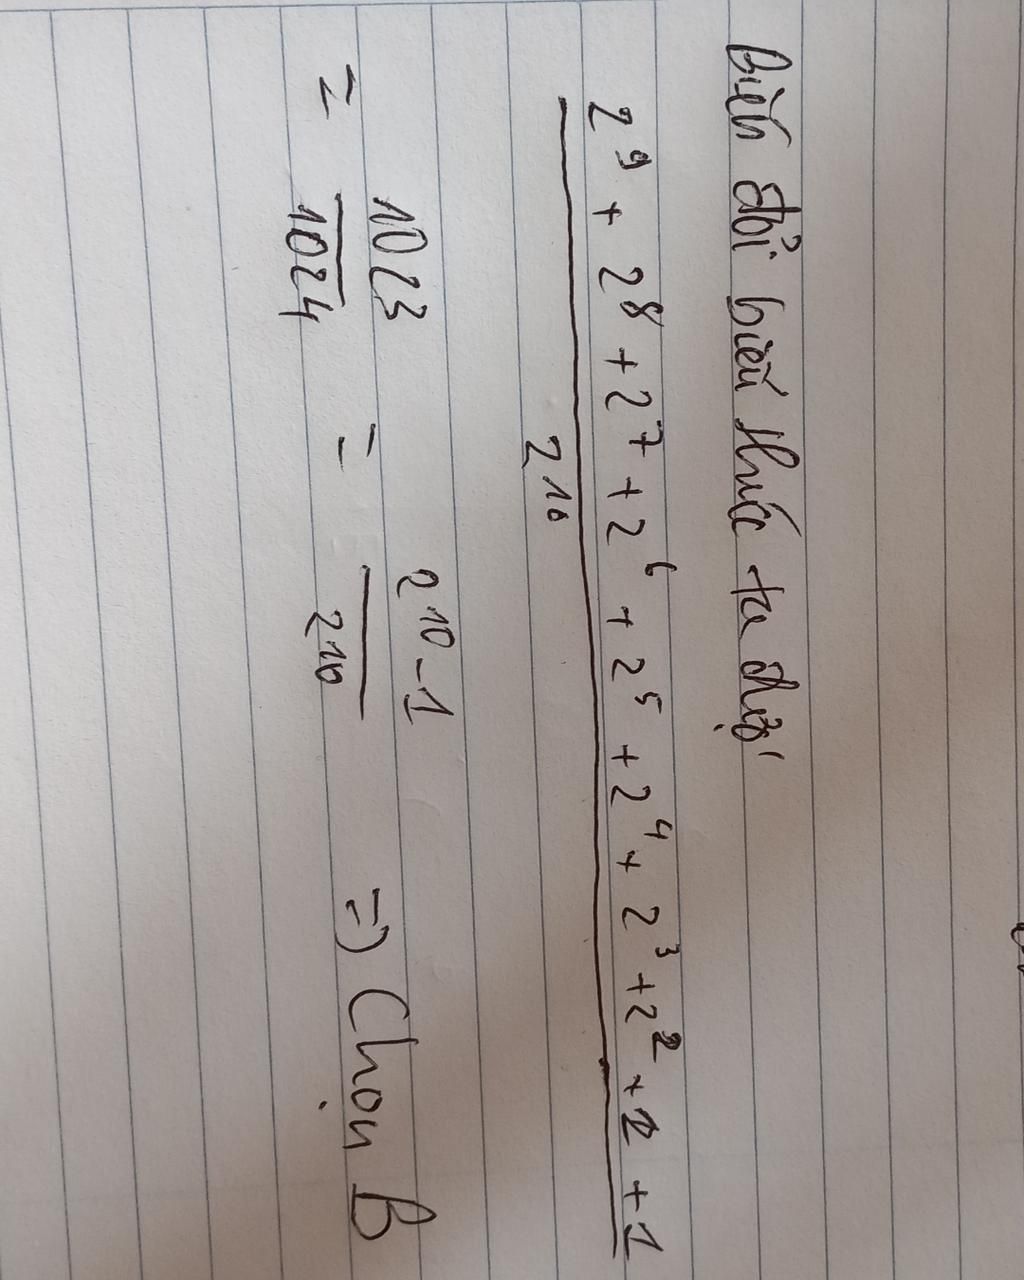 Biến đổi biểu thức ta được
2⁹ + 2⁸ + 2⁷ + 2⁶ + 2⁵ + 2⁴ + 2³ + 2² + 2 + 1
2¹⁰
= 1023/1024 = (2¹⁰ - 1)/2¹⁰ => Chọn B